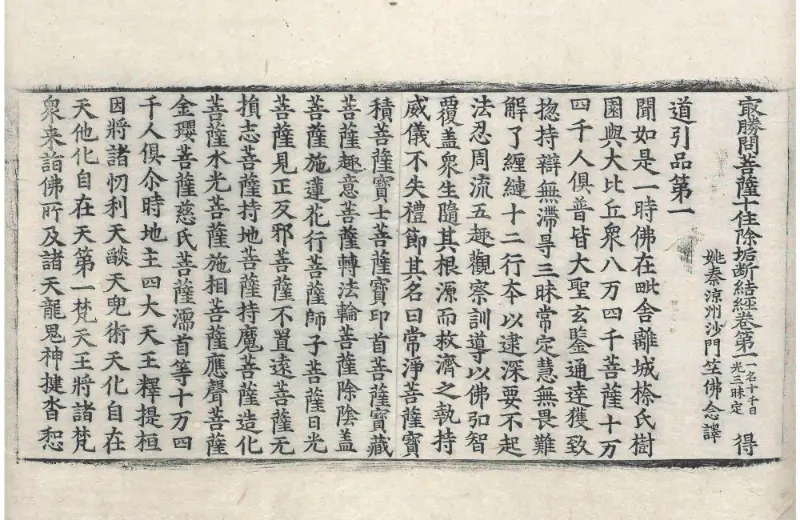 㝡勝問菩薩十住除垢断結經卷第一 一名十千日光三昧定 得
姚秦涼州沙門竺佛念譯
道引品第一
聞如是一時佛在毗舍離城㮈氏樹
園與大比丘衆八万四千菩薩十万
四千人俱普皆大聖玄鑒通達獲致
揔持辯無滯㝵三昧常定慧無畏難
解了纏縺十二行夲以逮深要不起
法忍周流五趣觀察訓導以佛弘智
覆盖衆生隨其根源而救濟之執持
威儀不失禮節其名曰常淨菩薩寶
積菩薩寶士菩薩寶印首菩薩寶藏
菩薩趣意菩薩轉法輪菩薩除陰盖
菩薩施蓮花行菩薩師子菩薩日光
菩薩見正反邪菩薩不置遠菩薩无
損志菩薩持地菩薩持魔菩薩造化
菩薩水光菩薩施相菩薩應聲菩薩
金瓔菩薩慈氏菩薩濡首等十万四
千人俱尒時地主四大天王釋提桓
因將諸忉利天酸天兜術天化自在
天他化自在天第一梵天王將諸梵
衆来詣佛所及諸天龍鬼神揵沓惒